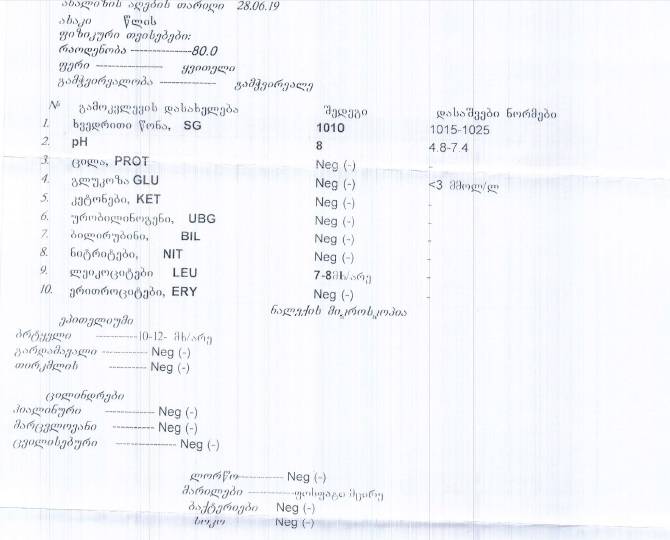 ანალიზის აღების თარიღი 28.06.19
ასაკი წლის
ფიზიკური თვისებები:
რაოდენობა ---------------80.0
ფერი ---------------- ყვითელი
გამჭვირვალობა -------------- გამჭვირვალე
№ გამოკვლევის დასახელება შედეგი დასაშვები ნორმები
1. ხვედრითი წონა, SG 1010 1015-1025
2. pH 8 4.8-7.4
3. ცილა, PROT Neg (-) -
4. გლუკოზა GLU Neg (-) <3 მმოლ/ლ
5. კეტონები, KET Neg (-) -
6. ურობილინოგენი, UBG Neg (-) -
7. ბილირუბინი, BIL Neg (-) -
8. ნიტრიტები, NIT Neg (-) -
9. ლეიკოციტები LEU 7-8მხ/არე -
10. ერითროციტები, ERY Neg (-) -
ნალექის მიკროსკოპია
ეპითელიუმი
ბრტყელი ----------10-12- მხ/არე
გარდამავალი ----------- Neg (-)
თირკმლის --------- Neg (-)
ცილინდრები
ჰიალინური ------------ Neg (-)
მარცვლოვანი ---------- Neg (-)
ცვილისებური --------------- Neg (-)
ლორწო----------- Neg (-)
მარილები -----------ფოსფატი მცირე
ბაქტერიები Neg (-)
სოკო Neg (-)